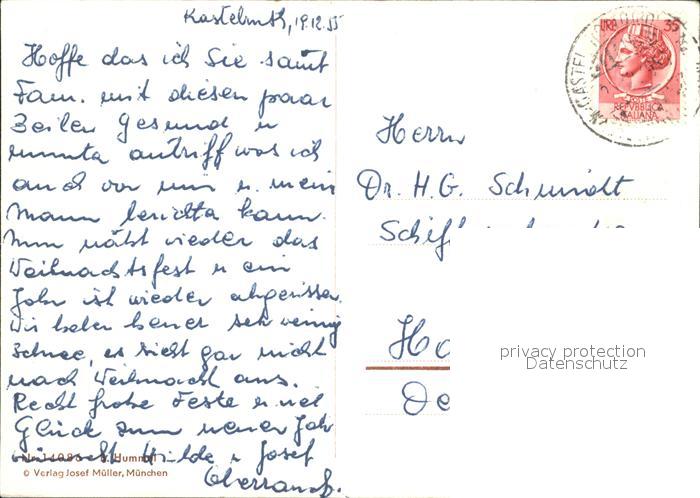 Kastelruth, 19.12.55
Hoffe das ich Sie samt
Fam. mit diesen paar
Zeilen Gesund u
munta antriff was ich
auch von mir u. mein
Mann berichta kann.
Nun näht wieder das
Weihnachtsfest u ein
Jahr ist wieder abgerissen.
Wir haben heuer sehr wenig
Schnee, es sieht gar nicht
nach Weihnacht aus.
Recht frohe Feste u viel
Glück zum neuen Jahr
Hilde u Josef
© Verlag Josef Müller, München
Herrn
Dr. H.G. Schmidt
Schif
Ha
De
privacy protection
Datenschutz
LIRE 35
REPVBBLICA
ITALIANA